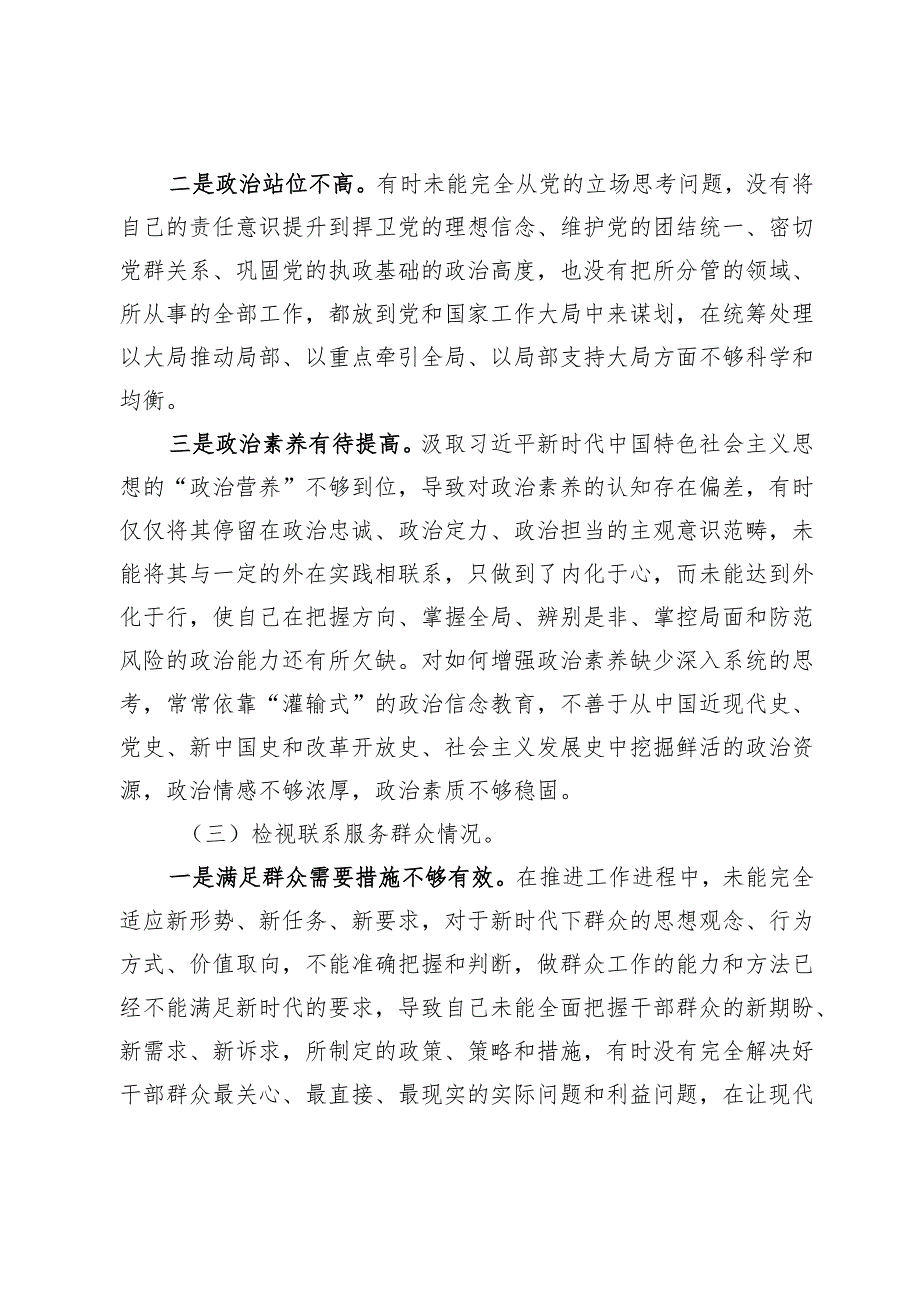 二是政治站位不高。有时未能完全从党的立场思考问题，没有将
自己的责任意识提升到捍卫党的理想信念、维护党的团结统一、密切
党群关系、巩固党的执政基础的政治高度，也没有把所分管的领域、
所从事的全部工作，都放到党和国家工作大局中来谋划，在统筹处理
以大局推动局部、以重点牵引全局、以局部支持大局方面不够科学和
均衡。
三是政治素养有待提高。汲取习近平新时代中国特色社会主义思
想的“政治营养”不够到位，导致对政治素养的认知存在偏差，有时
仅仅将其停留在政治忠诚、政治定力、政治担当的主观意识范畴，未
能将其与一定的外在实践相联系，只做到了内化于心，而未能达到外
化于行，使自己在把握方向、掌握全局、辨别是非、掌控局面和防范
风险的政治能力还有所欠缺。对如何增强政治素养缺少深入系统的思
考，常常依靠“灌输式”的政治信念教育，不善于从中国近现代史、
党史、新中国史和改革开放史、社会主义发展史中挖掘鲜活的政治资
源，政治情感不够浓厚，政治素质不够稳固。
（三）检视联系服务群众情况。
一是满足群众需要措施不够有效。在推进工作进程中，未能完全
适应新形势、新任务、新要求，对于新时代下群众的思想观念、行为
方式、价值取向，不能准确把握和判断，做群众工作的能力和方法已
经不能满足新时代的要求，导致自己未能全面把握干部群众的新期盼、
新需求、新诉求，所制定的政策、策略和措施，有时没有完全解决好
干部群众最关心、最直接、最现实的实际问题和利益问题，在让现代